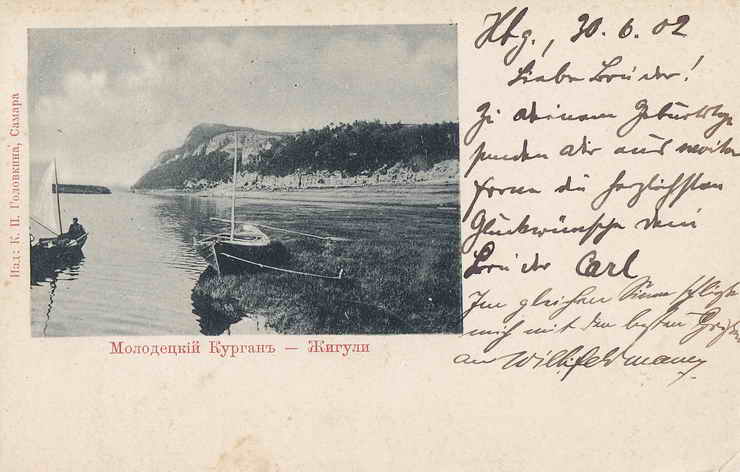 Изд: К. П. Головкина, Самара
Молодецкій Курганъ — Жигули
Hbg., 30. 6. 02
Liebe Bruder!
Zu deinem Geburtstage
senden dir aus weiter
Ferne die herzlichsten
Glückwünsche dein
Bruder Carl
Im gleichen Sinne schließt
mich mit den besten Grüßen
an